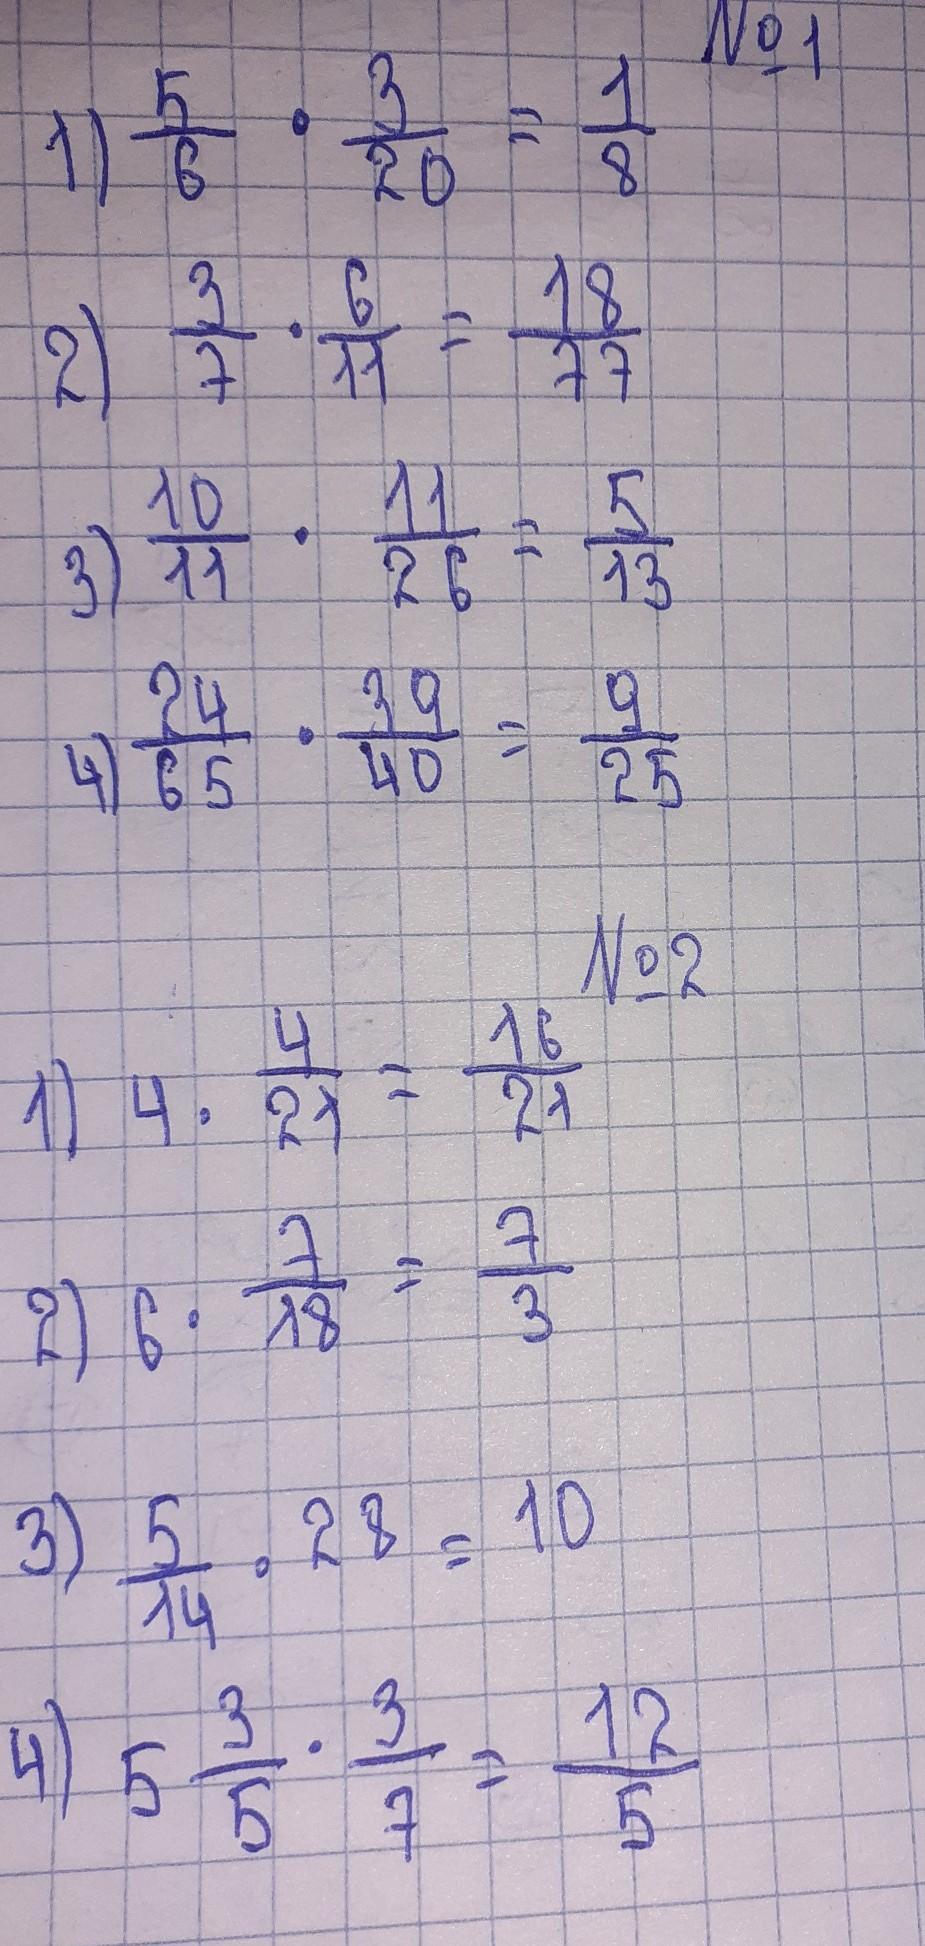 №1
1) 5/6 · 3/20 = 1/8
2) 3/7 · 6/11 = 18/77
3) 10/11 · 11/26 = 5/13
4) 24/65 · 39/40 = 9/25
№2
1) 4 · 4/21 = 16/21
2) 6 · 7/18 = 7/3
3) 5/14 · 28 = 10
4) 5 3/5 · 3/7 = 12/5